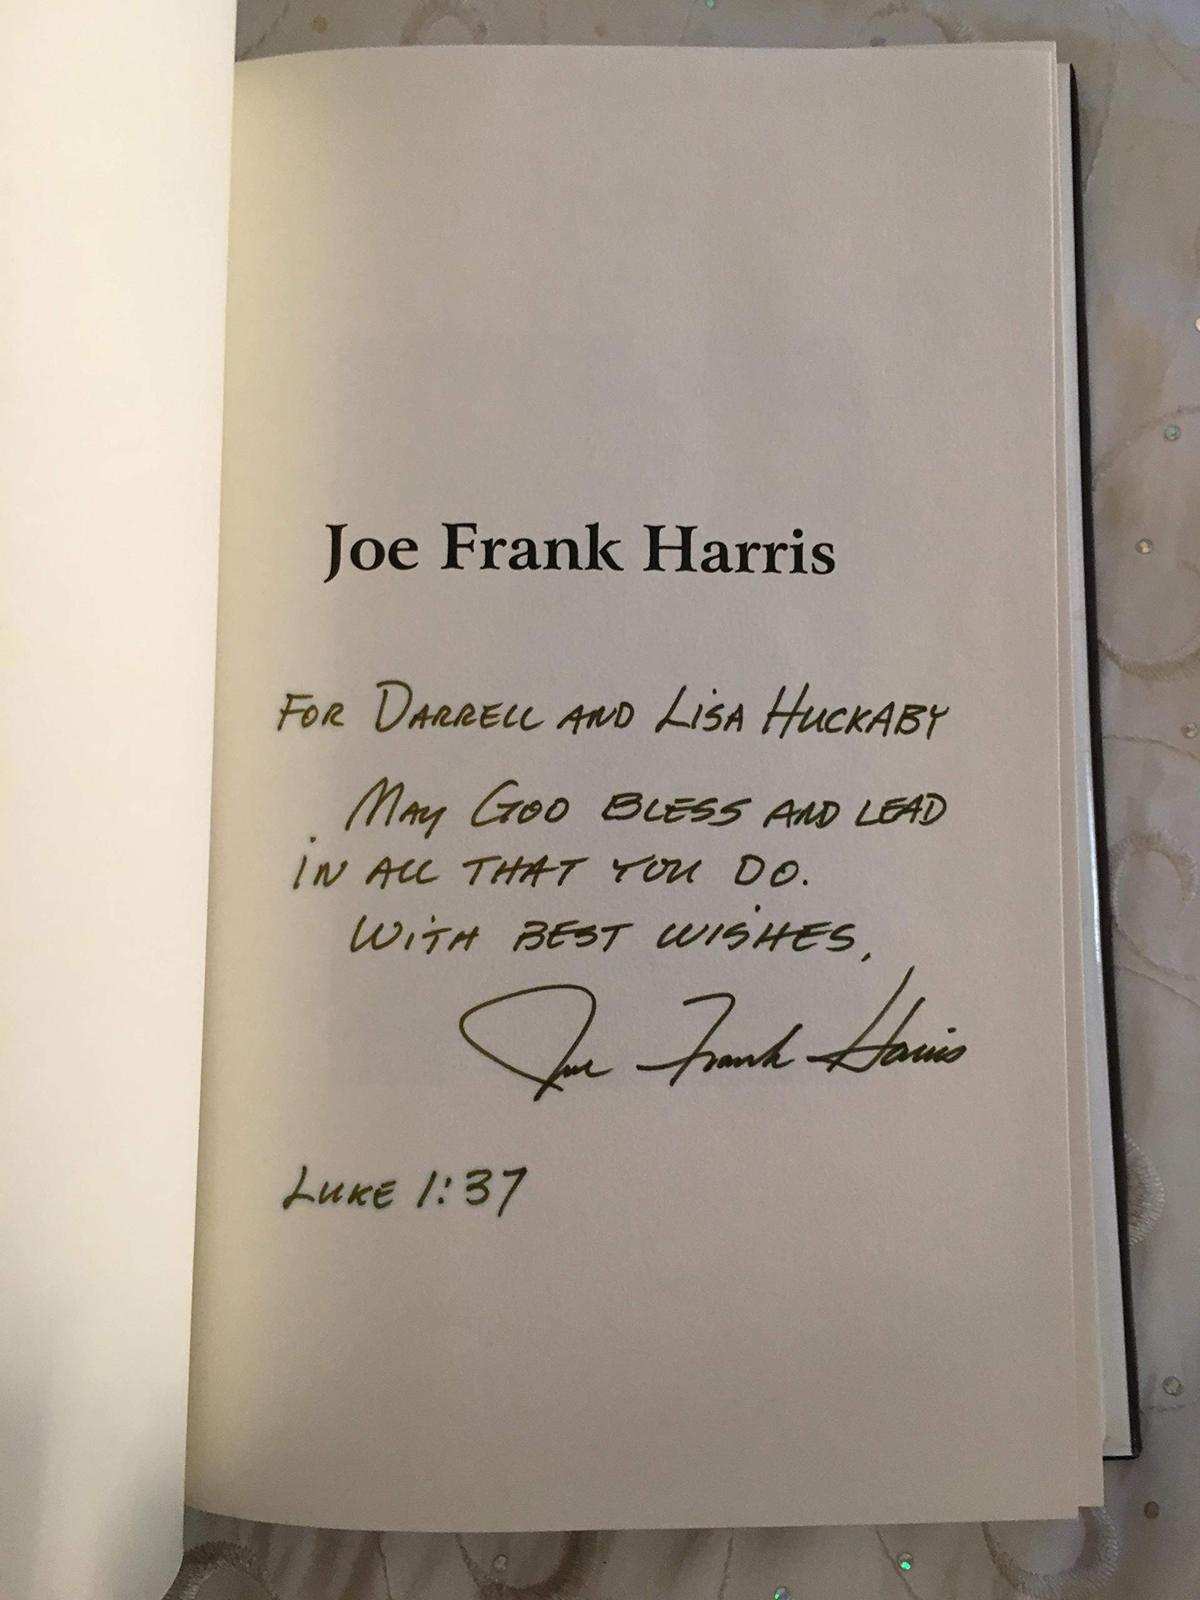 Joe Frank Harris
FOR DARRELL AND LISA HUCKABY
MAY GOD BLESS AND LEAD
IN ALL THAT YOU DO.
WITH BEST WISHES,
Joe Frank Harris
LUKE 1:37